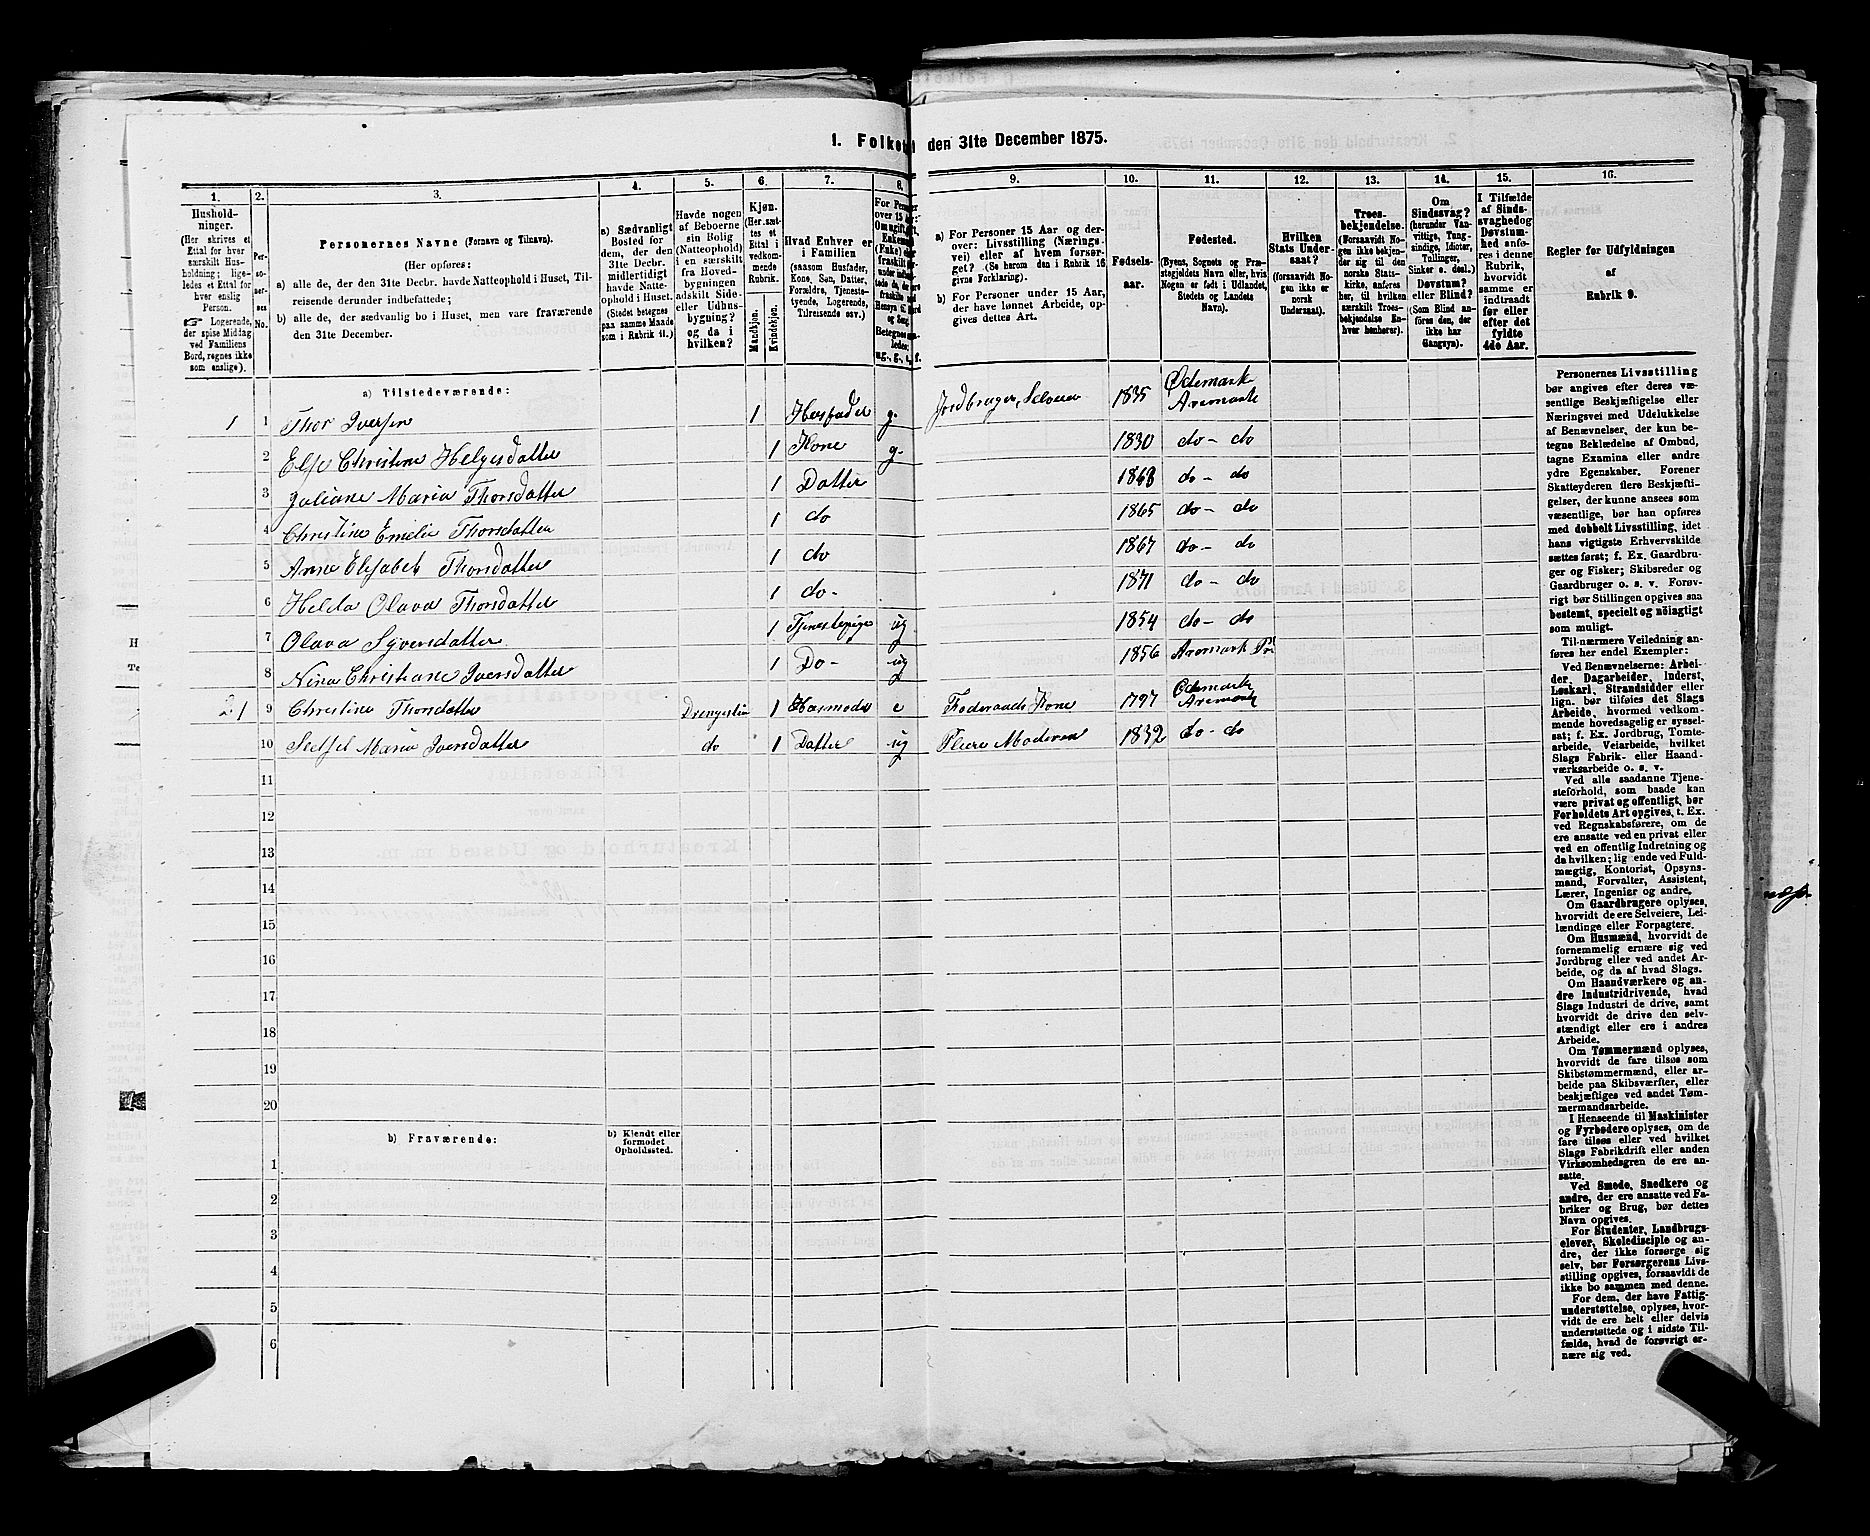 1. Folketal den 31te December 1875.
1. 2. 3. 4. 5. 6. 7. 8. 9. 10. 11. 12. 13. 14. 15. 16.
Hushold-
ninger.
(Her skrives et
Ettal for hver
særskilt Hus-
holdning; lige-
ledes et Ettal for
hver enslig
Person.
☞ Logerende,
der spise Middag
ved Familiens
Bord, regnes ikke
som enslige).
Per-
so-
ner-
nes
No.
Personernes Navne (Fornavn og Tilnavn).
(Her opføres:
a) alle de, der den 31te Decbr. havde Natteophold i Huset, Til-
reisende derunder indbefattede;
b) alle de, der sædvanlig bo i Huset, men vare fraværende
den 31te December.
a) Sædvanligt
Bosted for
dem, der den
31te Decbr.
midlertidigt
havde Natte-
ophold i Huset.
(Stedet betegnes
paa samme Maade
som i Rubrik 11.)
Havde nogen
af Beboerne
sin Bolig
(Natteophold)
i en særskilt
fra Hoved-
bygningen
adskilt Side-
eller Udhus-
bygning?
og da i
hvilken?
Kjøn.
(Her sæt-
tes et
Ettal i
vedkom-
mende
Rubrik.
Mandkjøn.
Kvindekjøn.
Hvad Enhver er
i Familien
(saasom Husfader,
Kone, Søn, Datter,
Forældre, Tjeneste-
tyende, Logerende,
Tilreisende osv.)
For Personer
over 15 Aar:
Om ugift, gift,
Enkemand
(Enke) eller
fraskilt
Betegnes
ug., g., e., f.
a) For Personer 15 Aar og der-
over: Livsstilling (Nærings-
vei) eller af hvem forsør-
get? (Se herom den i Rubrik 16
givne Forklaring).
b) For Personer under 15 Aar,
der have lønnet Arbeide, op-
gives dettes Art.
Fødsels-
aar.
Fødested.
(Byens, Sognets og Præ-
stegjeldets Navn eller, hvis
Nogen er født i Udlandet,
Stedets og Landets
Navn).
Hvilken
Stats Under-
saat?
(forsaavidt No-
gen ikke er
norsk
Undersaat).
Troes-
bekjendelse.
(Forsaavidt No-
gen ikke bekjen-
der sig til den
norske Stats-
kirke, anføres
her, til hvilken
særskilt Troes-
bekjendelse En-
hver henhører).
Om
Sindssvag?
(herunder Van-
vittige, Tung-
sindige, Idioter,
Tullinger,
Sinker o. desl.)
Døvstum?
eller Blind?
(Som Blind an-
føres den, der
ikke har
Gangsyn).
I Tilfælde
af Sinds-
svaghed og
Døvstum-
hed anfø-
res i denne
Rubrik,
hvorvidt
samme er
indtraadt
før eller
efter det
fyldte
4de Aar.
Regler for Udfyldningen
af
Rubrik 9.
a) Tilstedeværende:
1 1 Thor Iversen 1 Husfader g. Jordbruger, Selveier 1835 Ødemark Aremark
2 Else Christine Helgesdatter 1 Kone g. 1830 do - do
3 Juliane Maria Thorsdatter 1 Datter 1863 do - do
4 Christine Emelie Thorsdatter 1 do 1865 do - do
5 Anne Elisabet Thorsdatter 1 do 1867 do - do
6 Helda Olava Thorsdatter 1 do - 1871 do - do
7 Olava Syversdatter 1 Tjenestepige ug 1854 do - do
8 Nina Christiane Iversdatter 1 Do - ug 1856 Aremark Pr
2 1 9 Christine Thorsdatter 1 Husmoder e Føderaads Kone 1797 Ødemark Aremark
10 Maria Iversdatter do 1 Datter ug Moderen 1832 do - do
11
12
13
14
15
16
17
18
19
20
b) Fraværende:
b) Kjendt eller
formodet
Opholdssted.
1
2
3
4
5
6
Personernes Livsstilling
bør angives efter deres væ-
sentlige Beskjæftigelse eller
Næringsvei med Udelukkelse
af Benævnelser, der kun be-
tegne Beklædelse af Ombud,
tagne Examina eller andre
ydre Egenskaber. Forener
Skatteyderen flere Beskjæfti-
gelser, der kunne ansees som
væsentlige, bør han opføres
med dobbelt Livsstilling, idet
hans vigtigste Erhvervskilde
sættes først; f. Ex. Gaardbru-
ger og Fisker; Skibsreder og
Gaardbruger o. s. v. Forøv-
rigt bør Stillingen opgives saa
bestemt, specielt og nöiagtigt
som muligt.
Til nærmere Veiledning an-
føres her endel Exempler:
Ved Benævnelserne: Arbei-
der, Dagarbeider, Inderst,
Løskarl, Strandsidder eller
lign. bør tilføies det Slags
Arbeide, hvormed vedkom-
mende hovedsagelig er syssel-
sat; f. Ex. Jordbrug, Tomte-
arbeide, Veiarbeide, hvilket
Slags Fabrik- eller Haand-
værksarbeide o. s. v.
Ved alle saadanne Tjene-
steforhold, som baade kan
være privat og offentligt, bør
Forholdets Art opgives, t. Ex.
ved Regnskabsførere, om de
ere ansatte ved en privat eller
ved en offentlig Indretning og
da hvilken; lig ende ved Fuld-
mægtig, Kontorist, Opsyns-
mand, Forvalter, Assistent,
Lærer, Ingeniør og andre.
Om Gaardbrugere oplyses,
hvorvidt de ere Selveiere, Lei-
lændinge eller Forpagtere.
Om Husmænd, hvorvidt de
fornemmelig ernære sig ved
Jordbrug eller ved andet Ar-
beide, og da af hvad Slags.
Om Haandværkere og an-
dre Industridrivende, hvad
Slags Industri de drive, samt
hvorvidt de drive den selv-
stændigt eller ere i andres
Arbeide.
Om Tømmermænd oplyses,
hvorvidt de fare tilsøs som
Skibstømmermænd, eller ar-
beide paa Skibsværfter, eller
beskjæftiges ved andet Tøm-
mermandsarbeide.
I Henseende til Maskinister
og Fyrbødere oplyses, om de
fare tilsøs eller ved hvilket
Slags Fabrikdrift eller anden
Virksomhedsgren de ere an-
satte.
Ved Smede, Snedkere og
andre, der ere ansatte ved Fa-
briker og Brug, bør dettes
Navn opgives.
For Studenter, Landbrugs-
elever, Skoledisciple og an-
dre, der ikke forsørge sig
selv, bør Forsørgerens Livs-
stilling opgives, forsaavidt de
ikke bo sammen med denne.
For dem, der have Fattig-
understøttelse, oplyses, hvor-
vidt de ere helt eller delvis
understøttede og i sidste Til-
fælde, hvad de forøvrigt er-
nære sig ved.